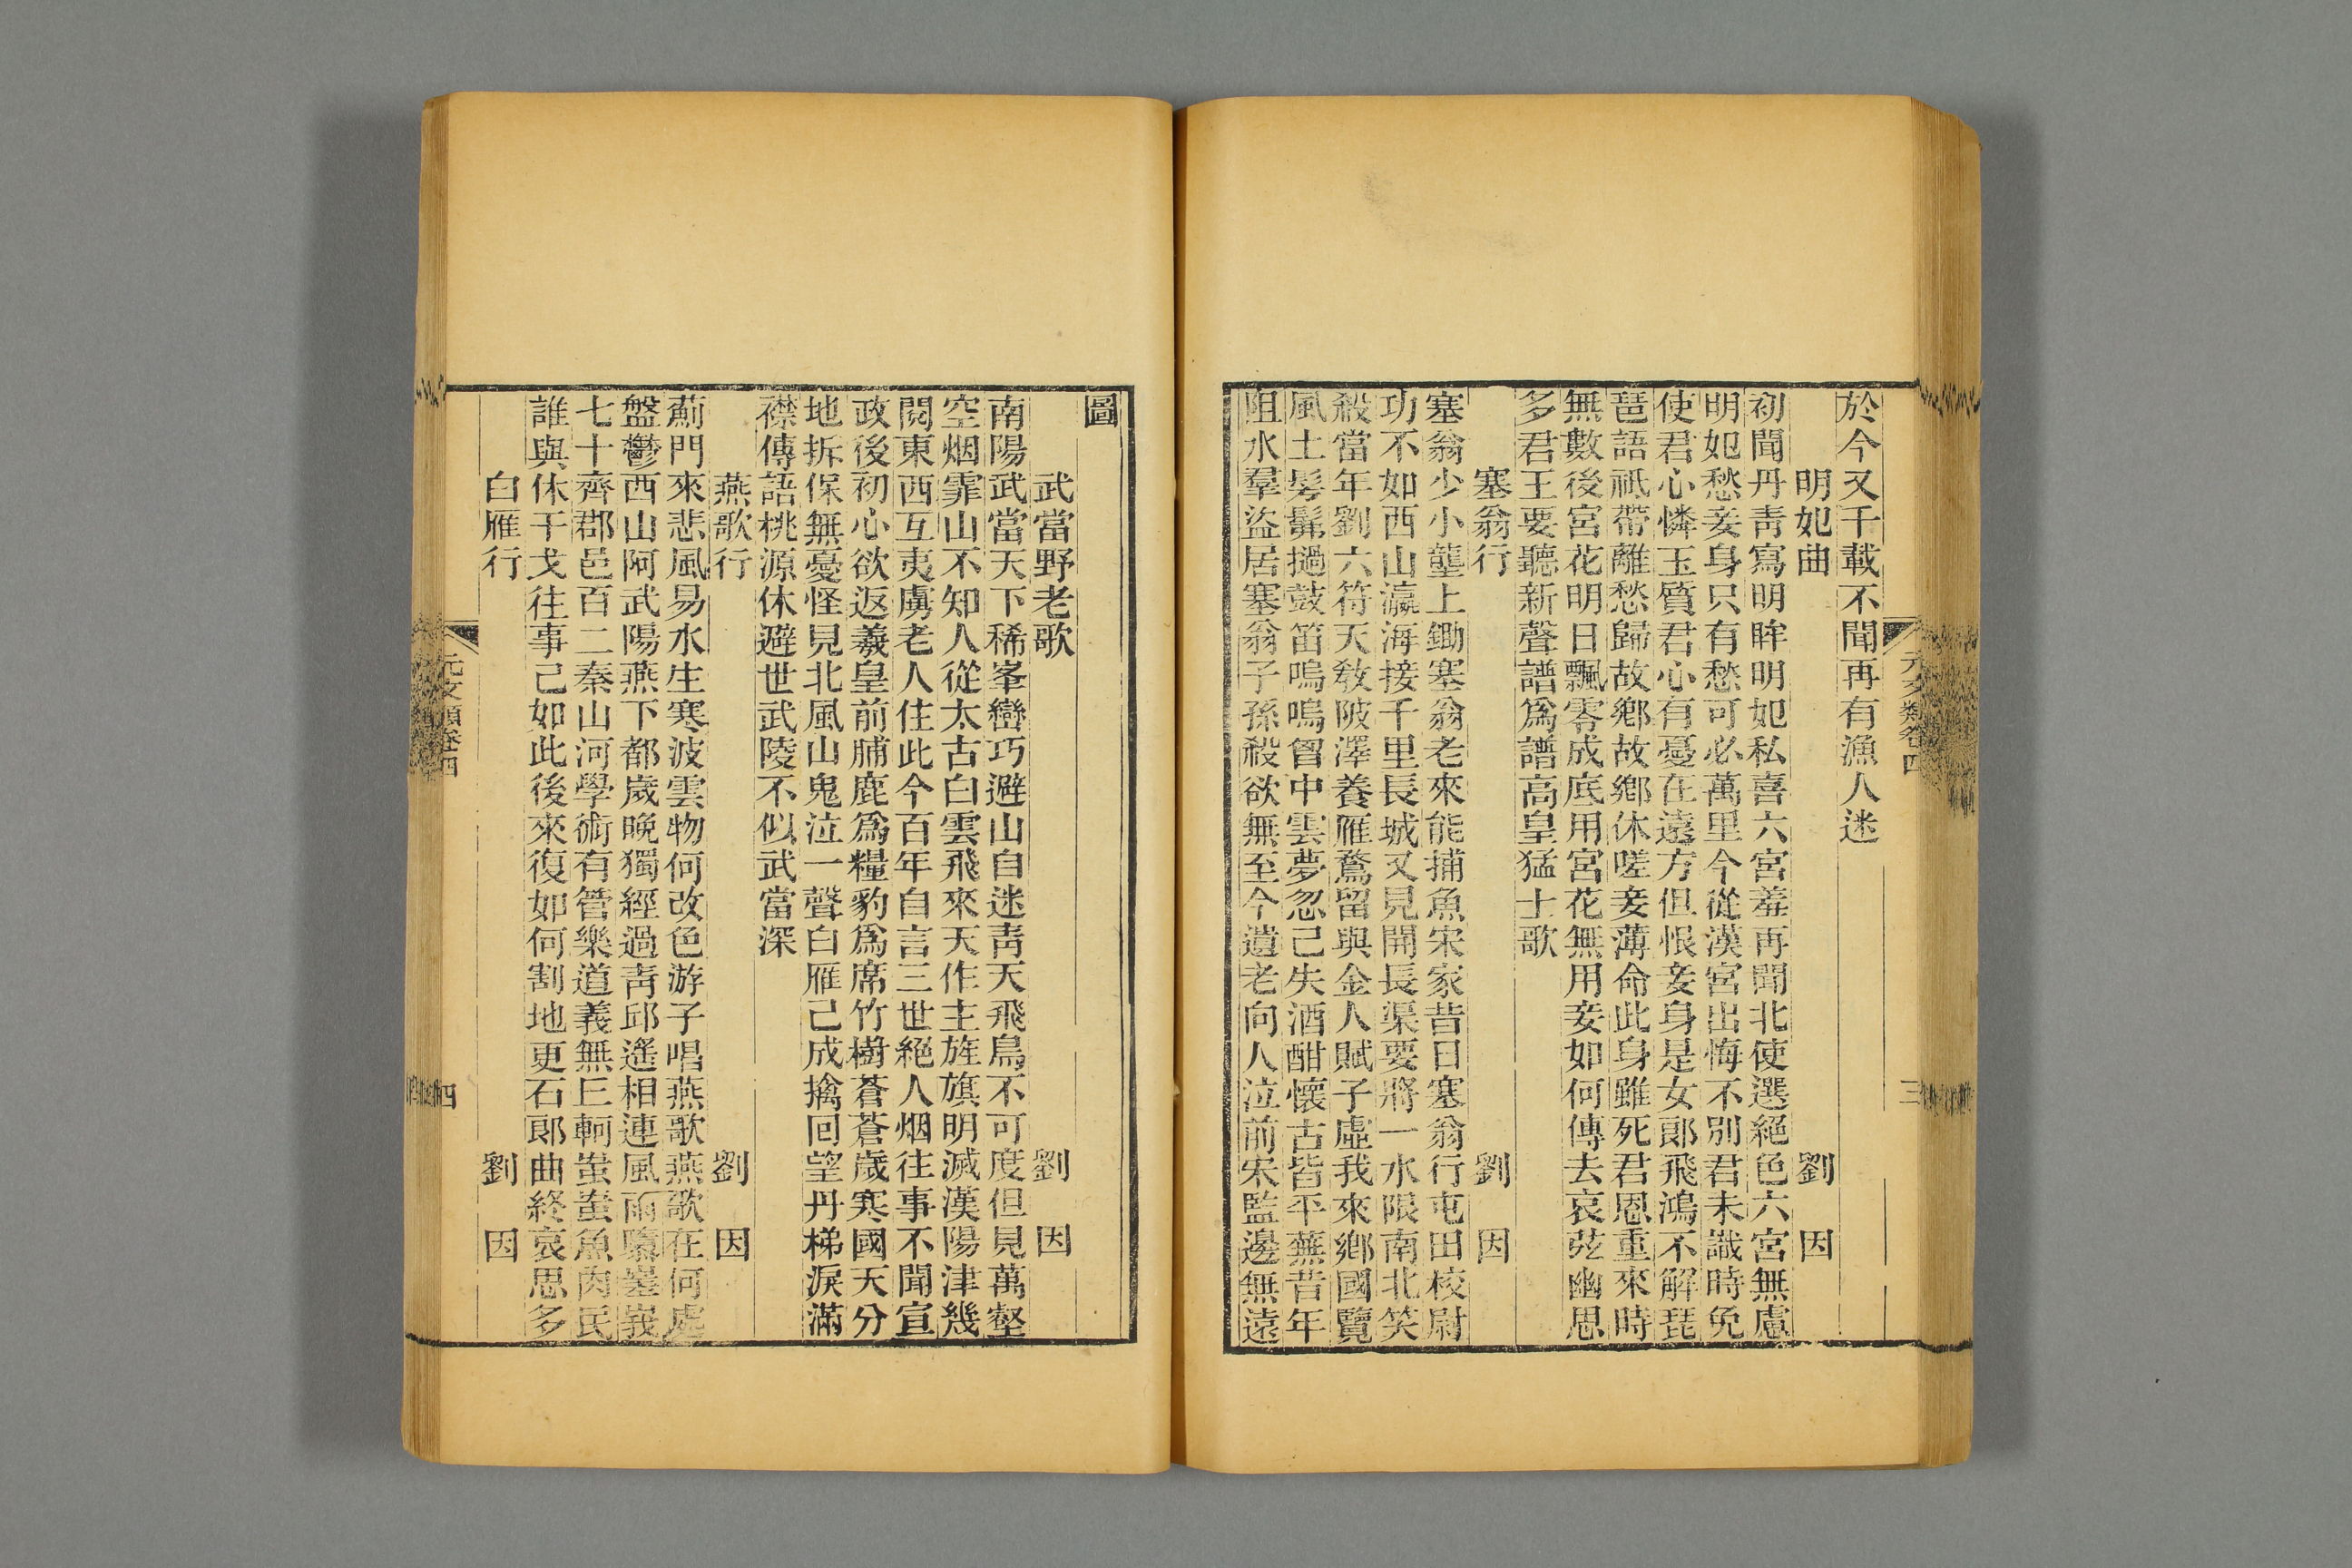 於今又千載不聞再有漁人迷
明妃曲 劉 因
初聞丹靑寫明眸明妃私喜六宮羞再聞北使選絕色六宮無慮
明妃愁妾身只有愁可必萬里今從漢宮出悔不別君未識時免
使君心憐玉質君心有憂在遠方但恨妾身是女郞飛鴻不解琵
琶語祗帶離愁歸故鄕故鄕休嗟妾薄命此身雖死君恩重來時
無數後宮花明日飄零成底用宮花無用妾如何傳去哀弦幽思
多君王要聽新聲譜爲譜高皇猛士歌
塞翁行 劉 因
塞翁少小壟上鋤塞翁老來能捕魚宋家昔日塞翁行屯田校尉
功不如西山瀛海接千里長城又見開長渠要將一水限南北笑
殺當年劉六符天敎陂澤養雁鶩留與金人賦子虛我來鄕國覽
風土髣髴撾鼓笛嗚嗚曾中雲夢忽已失酒酣懷古皆平蕪昔年
阻水羣盜居塞翁子孫殺欲無至今遺老向人泣前宋監邊無遠
元文類卷四
三
圖
武當野老歌 劉 因
南陽武當天下稀峯巒巧避山自迷靑天飛鳥不可度但見萬壑
空烟霏山不知人從太古白雲飛來天作主旌旗明滅漢陽津幾
閱東西互夷虜老人住此今百年自言三世絕人烟往事不聞宣
政後初心欲返羲皇前脯鹿爲糧豹爲席竹樹蒼蒼歲寒國天分
地拆保無憂怪見北風山鬼泣一聲白雁已成擒回望丹梯淚滿
襟傳語桃源休避世武陵不似武當深
燕歌行 劉 因
薊門來悲風易水生寒波雲物何改色游子唱燕歌燕歌在何處
盤鬱西山阿武陽燕下都歲晚獨經過靑邱遙相連風雨隳嵯峩
七十齊郡邑百二秦山河學術有管樂道義無丘軻蚩蚩魚肉民
誰與休干戈往事已如此後來復如何割地更石郞曲終哀思多
白雁行 劉 因
元文類卷四
四